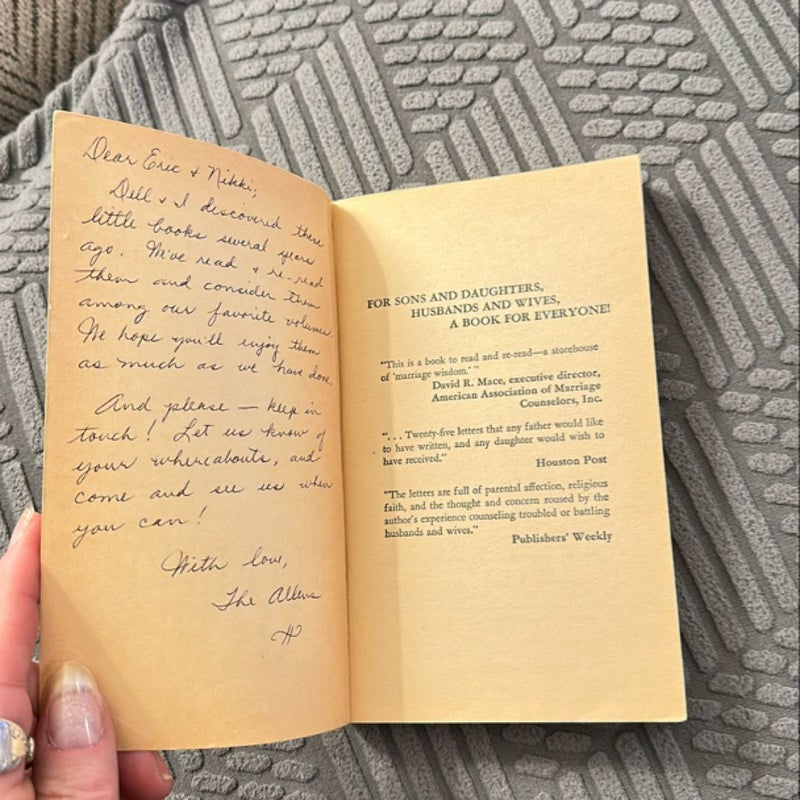 Dear Eric + Nikki;
Dell + I discovered these
little books several years
ago. We've read + re-read
them and consider them
among our favorite volumes.
We hope you'll enjoy them
as much as we have done.
And please — keep in
touch! Let us know of
your whereabouts, and
come and see us when
you can!
With love,
The Allens
FOR SONS AND DAUGHTERS,
HUSBANDS AND WIVES,
A BOOK FOR EVERYONE!
"This is a book to read and re-read—a storehouse
of 'marriage wisdom.' "
David R. Mace, executive director,
American Association of Marriage
Counselors, Inc.
". . . Twenty-five letters that any father would like
to have written, and any daughter would wish to
have received."
Houston Post
"The letters are full of parental affection, religious
faith, and the thought and concern roused by the
author's experience counseling troubled or battling
husbands and wives."
Publishers' Weekly